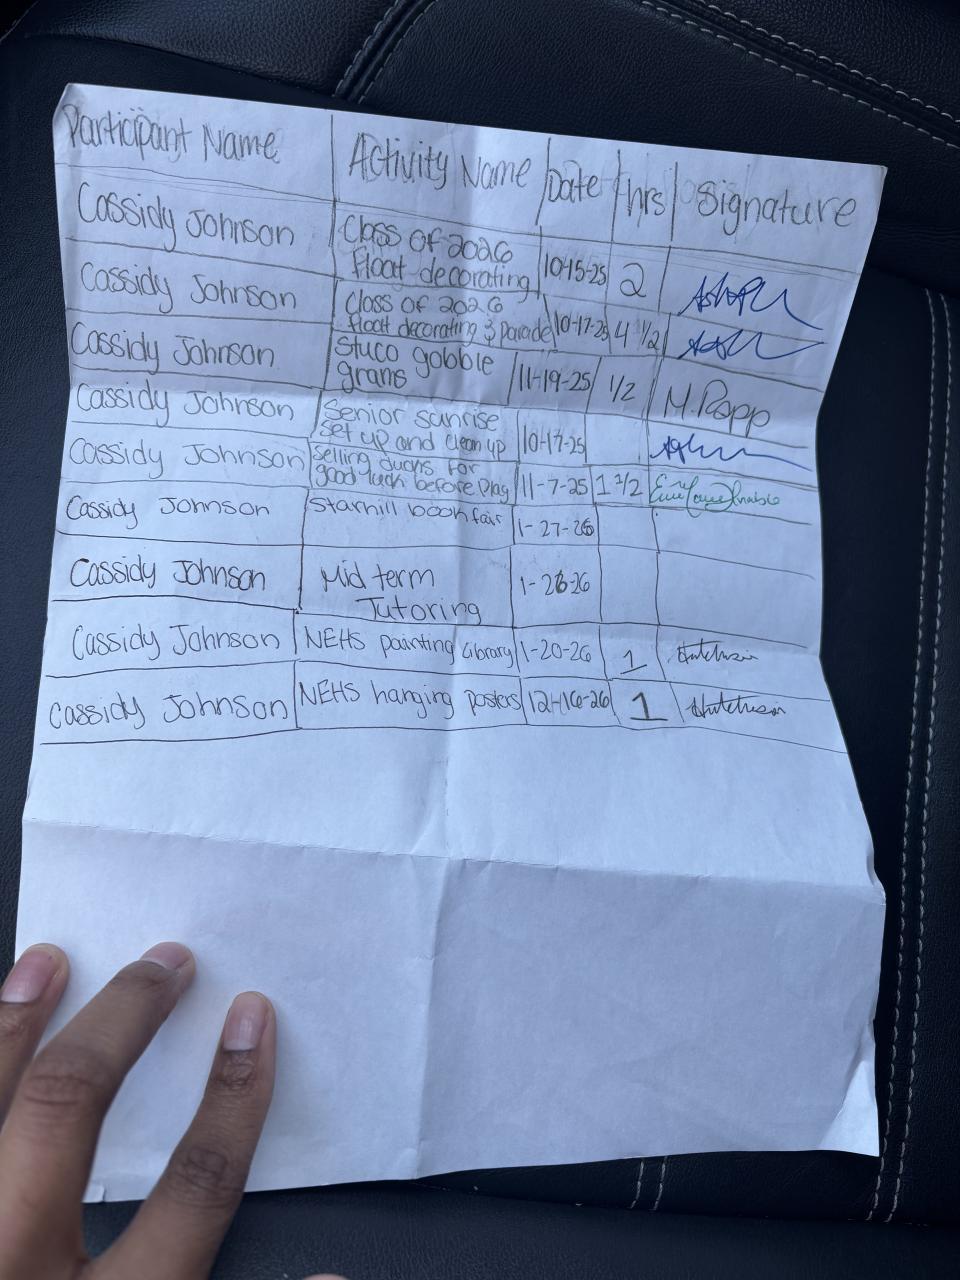 Participant Name Activity Name Date hrs Signature
Cassidy Johnson Class of 2026
Float decorating 10-15-25 2
Cassidy Johnson Class of 2026
float decorating & parade 10-17-25 4 1/2
Cassidy Johnson Stuco gobble
grams 11-19-25 1/2 M. Rapp
Cassidy Johnson Senior sunrise
set up and clean up 10-17-25
Cassidy Johnson Selling ducks for
good luck before play 11-7-25 1 1/2
Cassidy Johnson Starhill book fair 1-27-26
Cassidy Johnson Mid term
Tutoring 1-26-26
Cassidy Johnson NEHS painting Library 1-20-26 1 Hutchison
Cassidy Johnson NEHS hanging posters 12-16-26 1 Hutchison